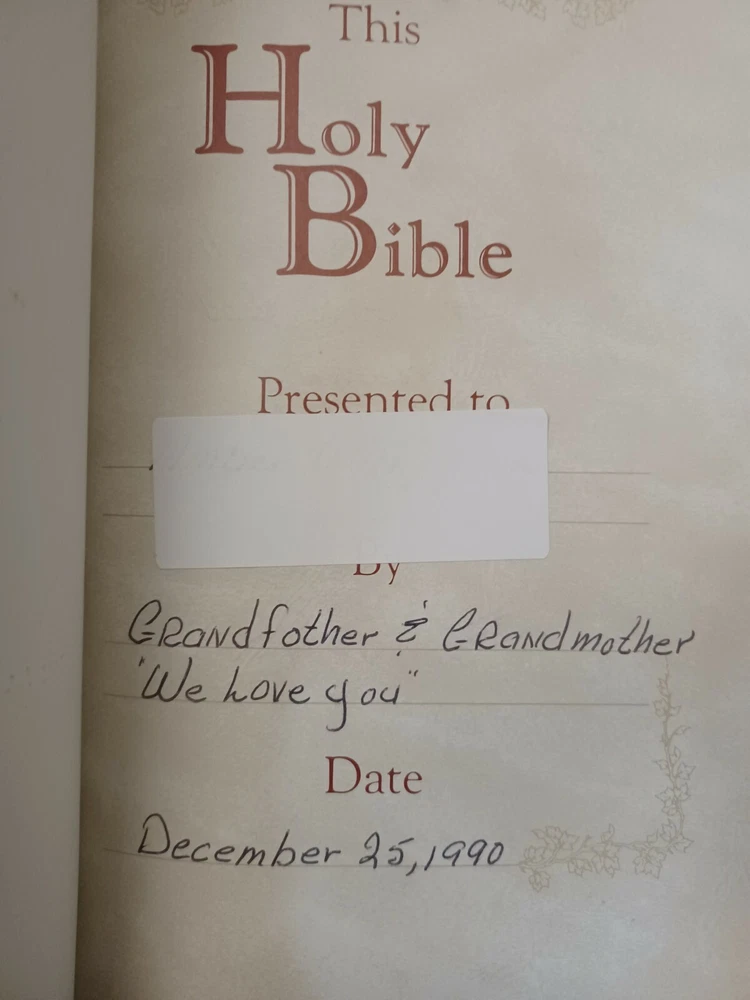 This
Holy
Bible
Presented to
By
Grandfother & Grandmother
"We Love you"
Date
December 25, 1990